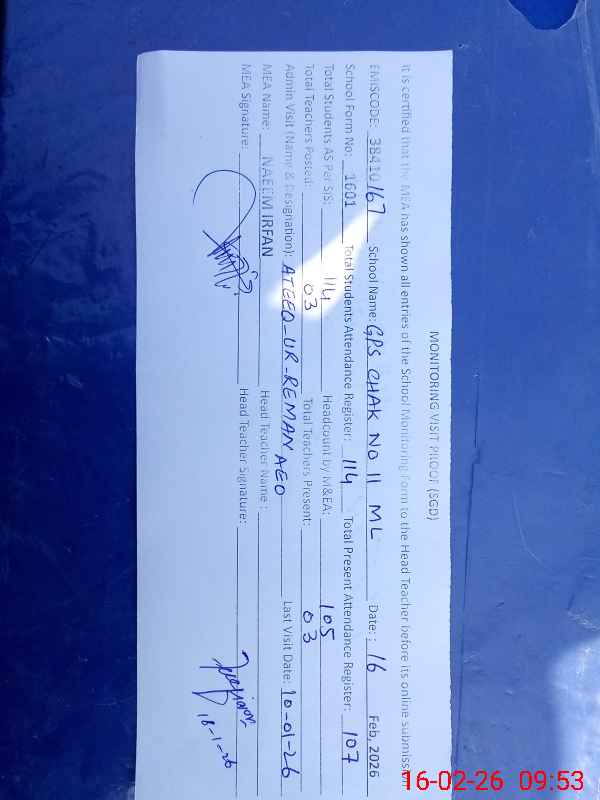 MONITORING VISIT PROOF (SGD)
It is certified that the MEA has shown all entries of the School Monitoring Form to the Head Teacher before its online submission
EMISCODE: 38410167 School Name: GPS CHAK NO 11 ML Date: : 16 Feb, 2026
School Form No: 1601 Total Students Attendance Register: 114 Total Present Attendance Register: 107
Total Students AS Per SIS: 114 Headcount by M&EA: 105
Total Teachers Posted: 03 Total Teachers Present: 03
Admin Visit (Name & Designation): ATEEQ-UR-REMAN AEO Last Visit Date: 10-01-26
MEA Name: NAEEM IRFAN Head Teacher Name :
MEA Signature: Head Teacher Signature:
16-1-26
16-02-26 09:53